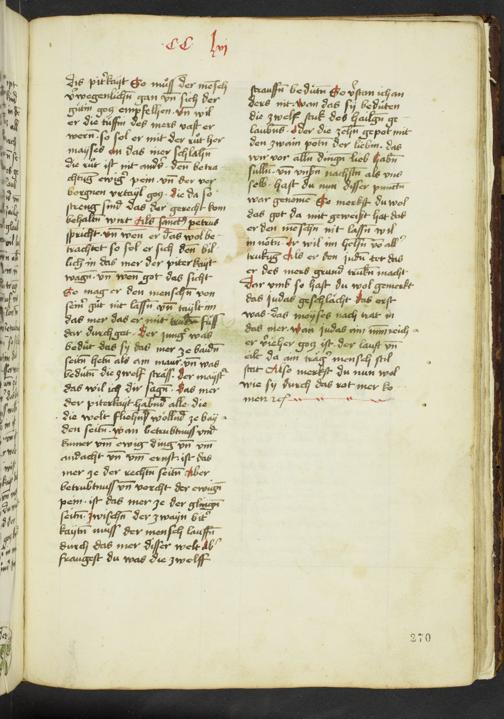 CC lvj
dis pit'kayt So müss der mesch
v'wegenlichn gan vn̄ sich der
gütm̄ gotz empfelhen vn̄ wil
er die tüffin des mers vast er
wern so sol er mit der rüt her
moyses in das mer schlahn̄
die rüt ist nit and's den betra
chtūg ewig' pein vn̄ der ver
borgnen vrtayl gotz die da so
streng sind das der gerecht kom
behalten wirt Als sanct' petrus
spricht vn̄ wen er das wol be
trachtet so sol er sich den bil
lich in das mer der piterkayt
wagn̄ vn̄ wen got das sicht
So mag er den menschen von
sein' güt nit lassn̄ er taylt im
das mer das er mit trukn̄ füss
dar durch gat Der jung' was
bedüt das sy das mer ze baidn̄
seitn̄ hetn̄ als ain maur vn̄ was
bedütn̄ die zwelf strass' der mayst'
das wil ich dir sagn̄ Das mer
der piterkayt habnd alle die
die welt fliehnd wollnd ze bay
den seitn̄ wan betrubtnuss vnd
kumer vm̄ ewig ding vn̄ vm̄
andacht vn̄ vm̄ ernst ist das
mer ze der rechtn̄ seitn̄ Aber
betrubtnuss vn̄ vorcht der ewign̄
pein ist das mer ze der glingn̄
seitn̄ zwischn̄ der zwayn bit'
kaytn̄ muss der mensch lauffn̄
durch das mer disser welt Ab'
fraugest du was die zwelff
straussn̄ bedütn̄ So v'stan ich an
ders nit wan das sy bedüten
die zwelf stuk des hailgn̄ ge
laubns Oder die zehn̄ gepot mit
den zwain potn̄ der liebin das
wir vor alln̄ dingn̄ lieb habn̄
sulln̄ vn̄ vnsn̄ nächstn̄ als vns
selb hast du nun disser puncten
war genome So merkst du wol
das got da mit geweist hat das
er den meschn̄ nit lassn̄ wil
in nötn̄ er wil im helfn̄ vō all'
trukūg Als er den judn̄ tet das
er des mers grund trukn̄ macht
Dar vmb so hast du wol gemerkt
das judas geschlächt das erst
was das moyses nach trat in
das mer wan judas ain inreich
er vieher gotz ist der lauft vn̄
ylt da ain träg' mensch stil
stat Also merkst du nun wol
wie sy durch das rot mer ko
men rc
270